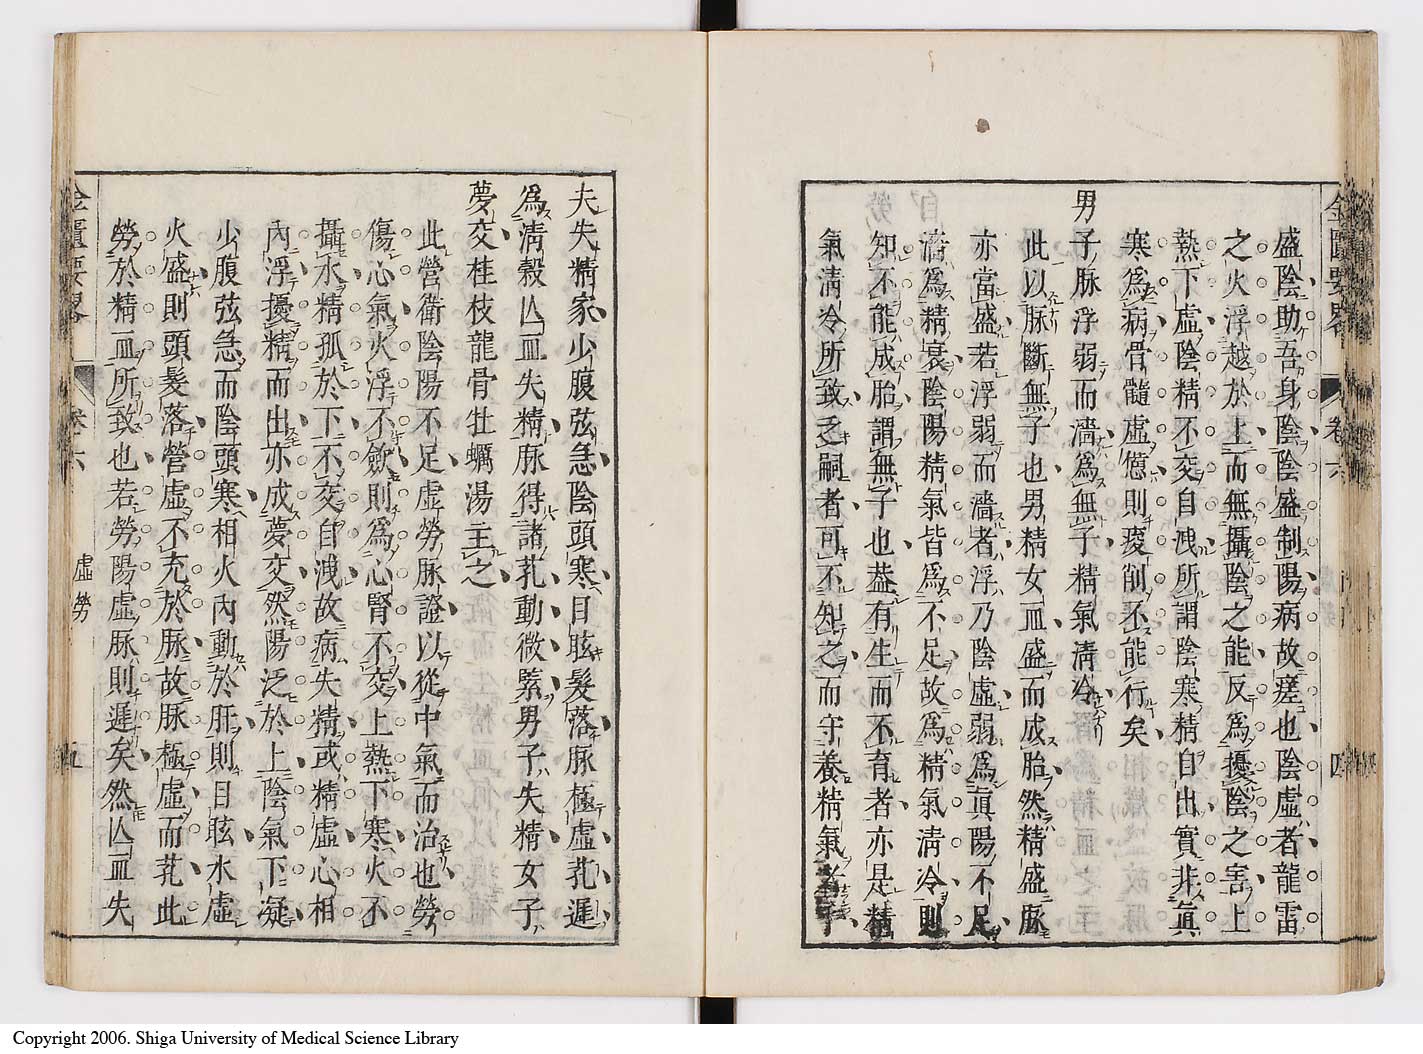 金匱要畧 卷六 四
盛陰助吾身陰陰盛制陽病故瘥也陰虛者龍雷
之火浮越於上而無攝陰之能反爲擾陰之害上
熱下虛陰精不交自洩所謂陰寒精自出實非眞
寒爲病骨髓虛憊則痠削不能行矣
男子脉浮弱而濇爲無子精氣清冷
此以脉斷無子也男精女血盛而成胎然精盛脉
亦當盛若浮弱而濇者浮乃陰虛弱爲眞陽不足
濇爲精衰陰陽精氣皆爲不足故爲精氣清冷則
知不能成胎謂無子也葢有生而不育者亦是精
氣清冷所致乏嗣者可不知之而守養精氣
夫失精家少腹弦急陰頭寒目眩髮落脉極虛芤遲
爲清穀亾血失精脉得諸芤動微緊男子失精女子
夢交桂枝龍骨牡蠣湯主之
此營衛陰陽不足虛勞脉證以從中氣而治也勞
傷心氣火浮不斂則爲心腎不交上熱下寒火不
攝水精孤於下不交自洩故病失精或精虛心相
內浮擾精而出亦成夢交然陽泛於上陰氣下凝
少腹弦急而陰頭寒相火內動於肝則目眩水虛
火盛則頭髮落營虛不充於脉故脉極虛而芤此
勞於精血所致也若勞陽虛脉則遲矣然亾血失
金匱要畧 卷六 虛勞 五
Copyright 2006. Shiga University of Medical Science Library